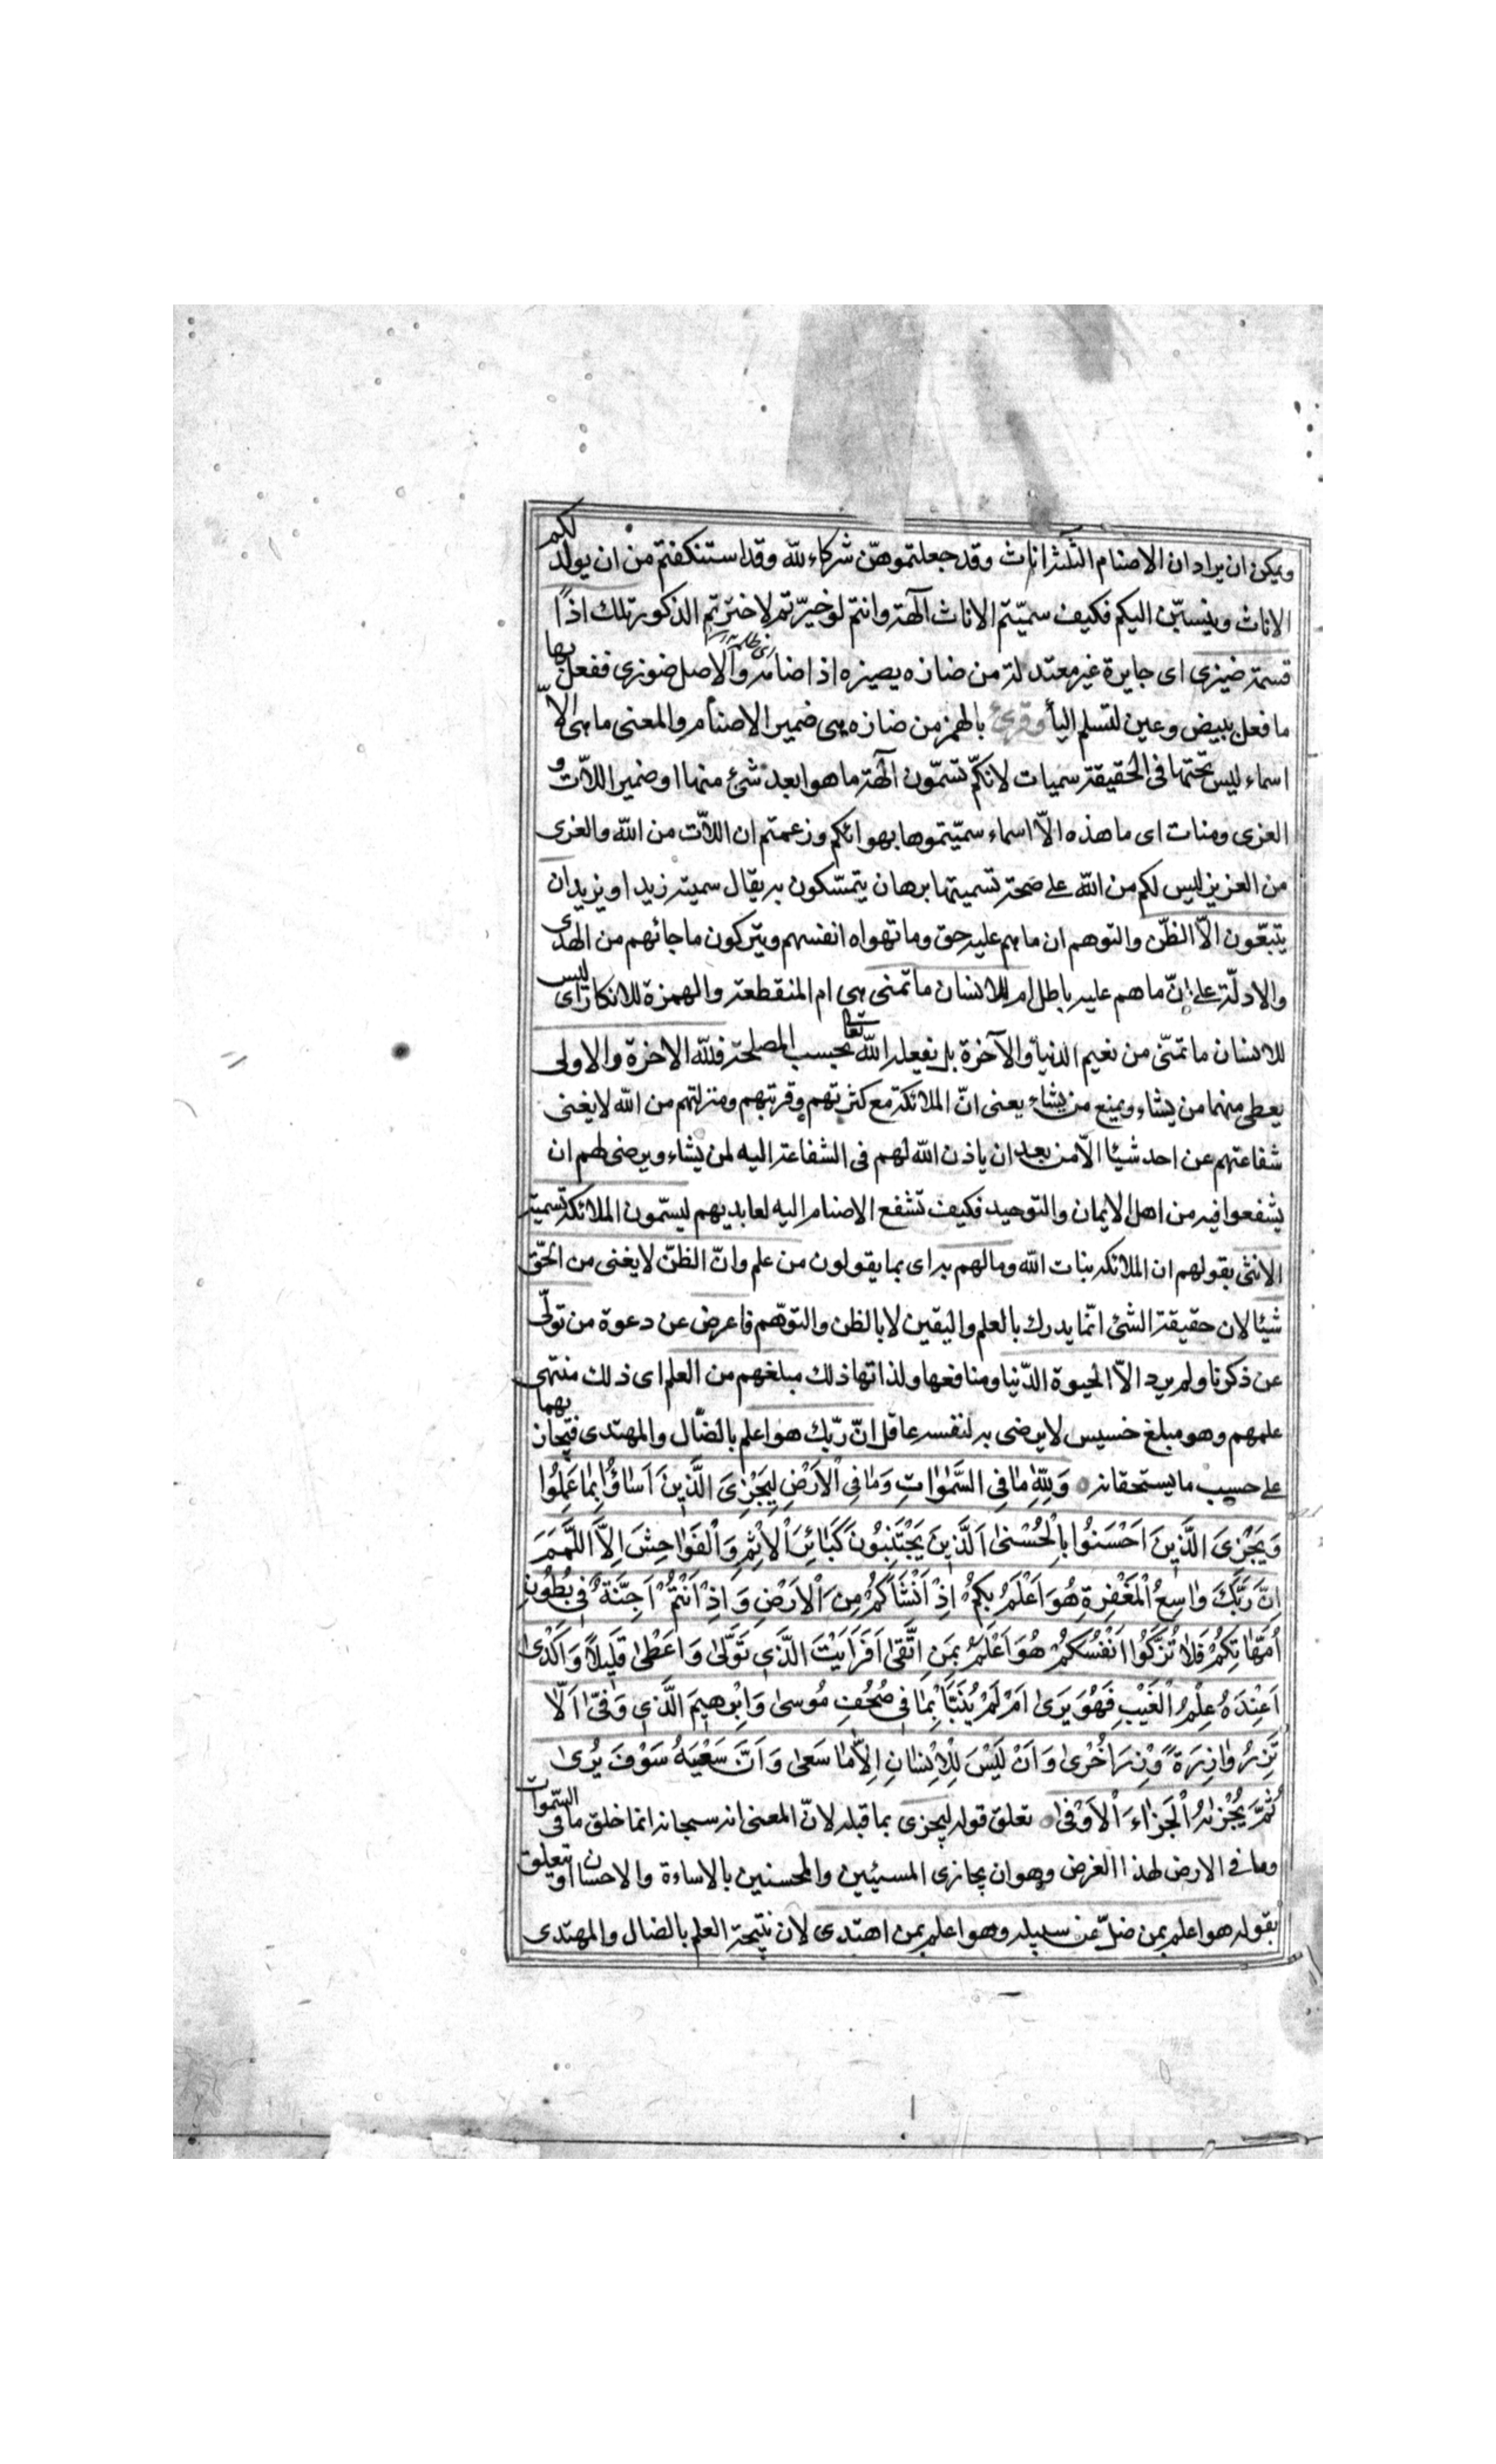 ويمكن ان يراد ان الاصنام الثلثة اناث وقد جعلتموهن شركاء لله وقد استنكفتم من ان يولد لكم
الاناث وينسبن اليكم فكيف سميتم الاناث آلهة وانتم لو خيرتم لاخترتم الذكور تلك اذًا
قسمة ضيزى اى جايرة غير معتدلة من ضازه يضيزه اذا ضامه والاصل ضوزى ففعل بها
ما فعل ببيض وعين لتسلم اليأ وقرئ بالهمز من ضازه هى ضمير الاصنام والمعنى ما هى الّا
اسماء ليس تحتها فى الحقيقة سميات لانكم تسمّون آلهة ما هو ابعد شئ منها او ضمير اللّات و
العزى ومنات اى ما هذه الّا اسماء سمّيتموها بهوائكم وزعمتم ان اللّات من الله والعزى
من العزيز ليس لكم من الله على صحة تسميتها برهان يتمسّكون به يقال سميته زيدا او بزيد ان
يتبعون الّا الظنّ والتوهم ان ما هم عليه حق وما تهواه انفسهم ويتركون ما جائهم من الهدى
والادلّة على انّ ما هم عليه باطل ام للانسان ما تمنى هى ام المنقطعة والهمزة للانكار اى ليس
للانسان ما تمنّى من نعيم الدنيا والآخرة بل يفعله الله تعا بحسب المصلحة فلله الاخرة والاولى
يعطى منهما من يشاء ويمنع من يشاء يعنى انّ الملائكة مع كثرتهم وقربتهم ومنزلتهم من الله لا يغنى
شفاعتهم عن احد شيئا الّا من بعد ان ياذن الله لهم فى الشفاعة اليه لمن يشاء ويرضى لهم ان
يشفعوا فيه من اهل الايمان والتوحيد فكيف تشفع الاصنام اليه لعابديهم ليسمّون الملائكة تسمية
الانثى بقولهم ان الملائكة بنات الله وما لهم به اى بما يقولون من علم وانّ الظنّ لا يغنى من الحقّ
شيئا لان حقيقة الشئ انّما يدرك بالعلم واليقين لا بالظن والتوهّم فاعرض عن دعوة من تولّى
عن ذكرنا ولم يرد الّا الحيوة الدّنيا ومنافعها ولذاتها ذلك مبلغهم من العلم اى ذلك منتهى
علمهم وهو مبلغ خسيس لا يرضى به لنفسه عاقل انّ ربّك هو اعلم بالضّال والمهتدى فيجاز بهما
على حسب ما يستحقانه وَلِلّٰهِ مٰا فِى السَّمٰوٰاتِ وَمٰا فِى الْاَرْضِ لِيَجْزِىَ الَّذِينَ اَسٰاؤُا بِمٰا عَمِلُوا
وَيَجْزِىَ الَّذِينَ اَحْسَنُوا بِالْحُسْنىٰ اَلَّذِينَ يَجْتَنِبُونَ كَبٰائِرَ الْاِثْمِ وَالْفَوٰاحِشَ اِلَّا اللَّمَمَ
اِنَّ رَبَّكَ وٰاسِعُ الْمَغْفِرَةِ هُوَ اَعْلَمُ بِكُمْ اِذْ اَنْشَاَكُمْ مِنَ الْاَرْضِ وَاِذْ اَنْتُمْ اَجِنَّةٌ فِى بُطُونِ
اُمَّهٰاتِكُمْ فَلٰا تُزَكُّوا اَنْفُسَكُمْ هُوَ اَعْلَمُ بِمَنِ اتَّقىٰ اَفَرَاَيْتَ الَّذِى تَوَلّىٰ وَاَعْطىٰ قَلِيلًا وَاَكْدىٰ
اَعِنْدَهُ عِلْمُ الْغَيْبِ فَهُوَ يَرىٰ اَمْ لَمْ يُنَبَّأْ بِمٰا فِى صُحُفِ مُوسىٰ وَاِبْرٰهِيمَ الَّذِى وَفّىٰ اَلّٰا
تَزِرُ وٰازِرَةٌ وِزْرَ اُخْرىٰ وَاَنْ لَيْسَ لِلْاِنْسٰانِ اِلّٰا مٰا سَعىٰ وَاَنَّ سَعْيَهُ سَوْفَ يُرىٰ
ثُمَّ يُجْزٰيهُ الْجَزٰاءَ الْاَوْفىٰ تعلق قوله ليجزى بما قبله لانّ المعنى انه سبحانه انما خلق ما فى السّموات
وما فى الارض لهذا الغرض وهو ان يجازى المسيئين والمحسنين بالاساءة والاحسان او يتعلق
بقوله هو اعلم بمن ضلّ عن سبيله وهو اعلم بمن اهتدى لان نتيجة العلم بالضال والمهتدى